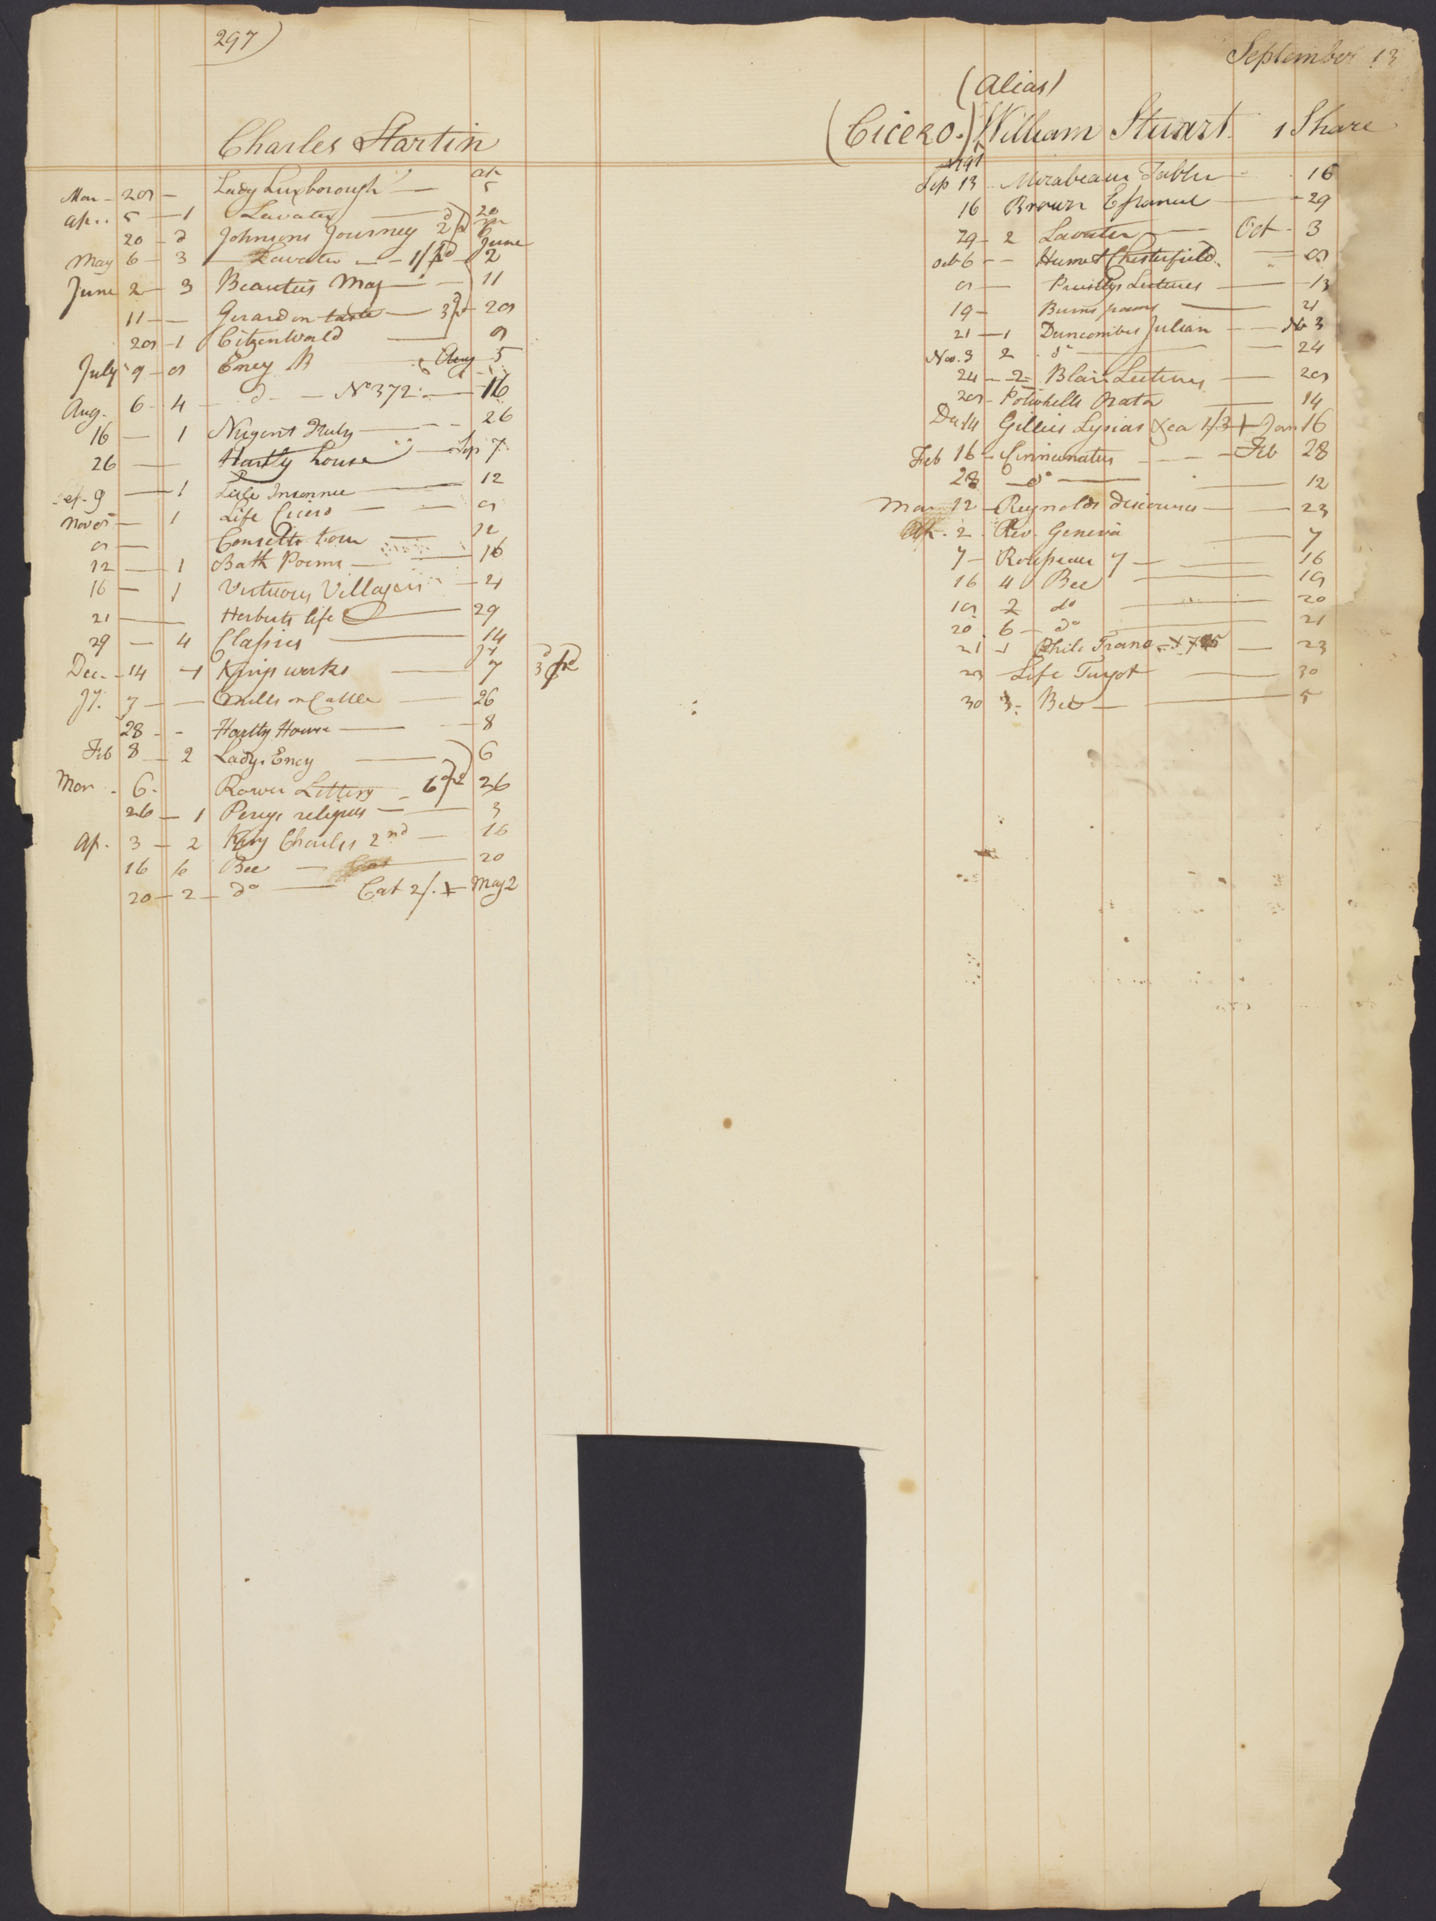 297)
Charles Startin
Mar - 28 - Lady Luxborough - ap 5
ap. 5 - 1 Lavater - 20
20 - d Johnsons Journey 2d pd 6
May 6 - 3 - Lavater - 1/ pd - June 2
June 2 - 3 Beauties Mag - 11
11 - Gerard on taste - 3d pd - 28
28 - 1 Citzen World - 9
July 9 - 8 Ency B - Aug 5
Aug. 6 - 4 - do - No 372 - 16
16 - 1 Nugent - 26
26 - Hartly house - Sep 7
Sep. 9 - 1 - 12
Nov 8 - 1 Life Cicero - 8
8 - Consetts tour - 12
12 - 1 Bath Poems - 16
16 - 1 Virtuous Villagers - 21
21 - Herberts life - 29
29 - 4 Classics - 14
Dec. - 14 - 1 Kings works - Jy 7 3d pd
Jy. 7 - Mills on Cattle - 26
28 - Hartly House - 8
Feb 8 - 2 Ladys Ency - 6
Mar - 6 - Rowes Letters - 6d pd 26
26 - 1 Percys reliques - 3
ap. 3 - 2 King Charles 2nd - 16
16 6 Bee - 20
20 - 2 - do - Cat 2/. + May 2
September 13
(alias)
(Cicero.) William Stuart. 1 Share
1791
Sep 13 - Mirabeaus Fables - 16
16 Brown Essence - 29
29 - 2 Lavater - Oct - 3
oct 6 - Hume & Chesterfield. - 8
8 - Priestlys Lectures - 13
19 - Burns poems - 21
21 - 1 Duncombes Julian - Nov 3
Nov. 3 2 do - 24
24 - 2 Blairs Lectures - 28
28 - Polwhells Orator - 14
Dec 14 Gillies Lysias &ca 1/3 + Jan 16
Feb 16 - Cincinnatus - Feb 28
28 - do - 12
Mar 12 - Reynolds discourses - 23
Apr. 2. Rev. Geneva - 7
7 - Rousseau 7 - 16
16 4 Bee - 19
19 2 do - 20
20. 6 - do - 21
21 - 1 Phil Trans - 23
23 - Life Turgot - 30
30 3 - Bee - 5